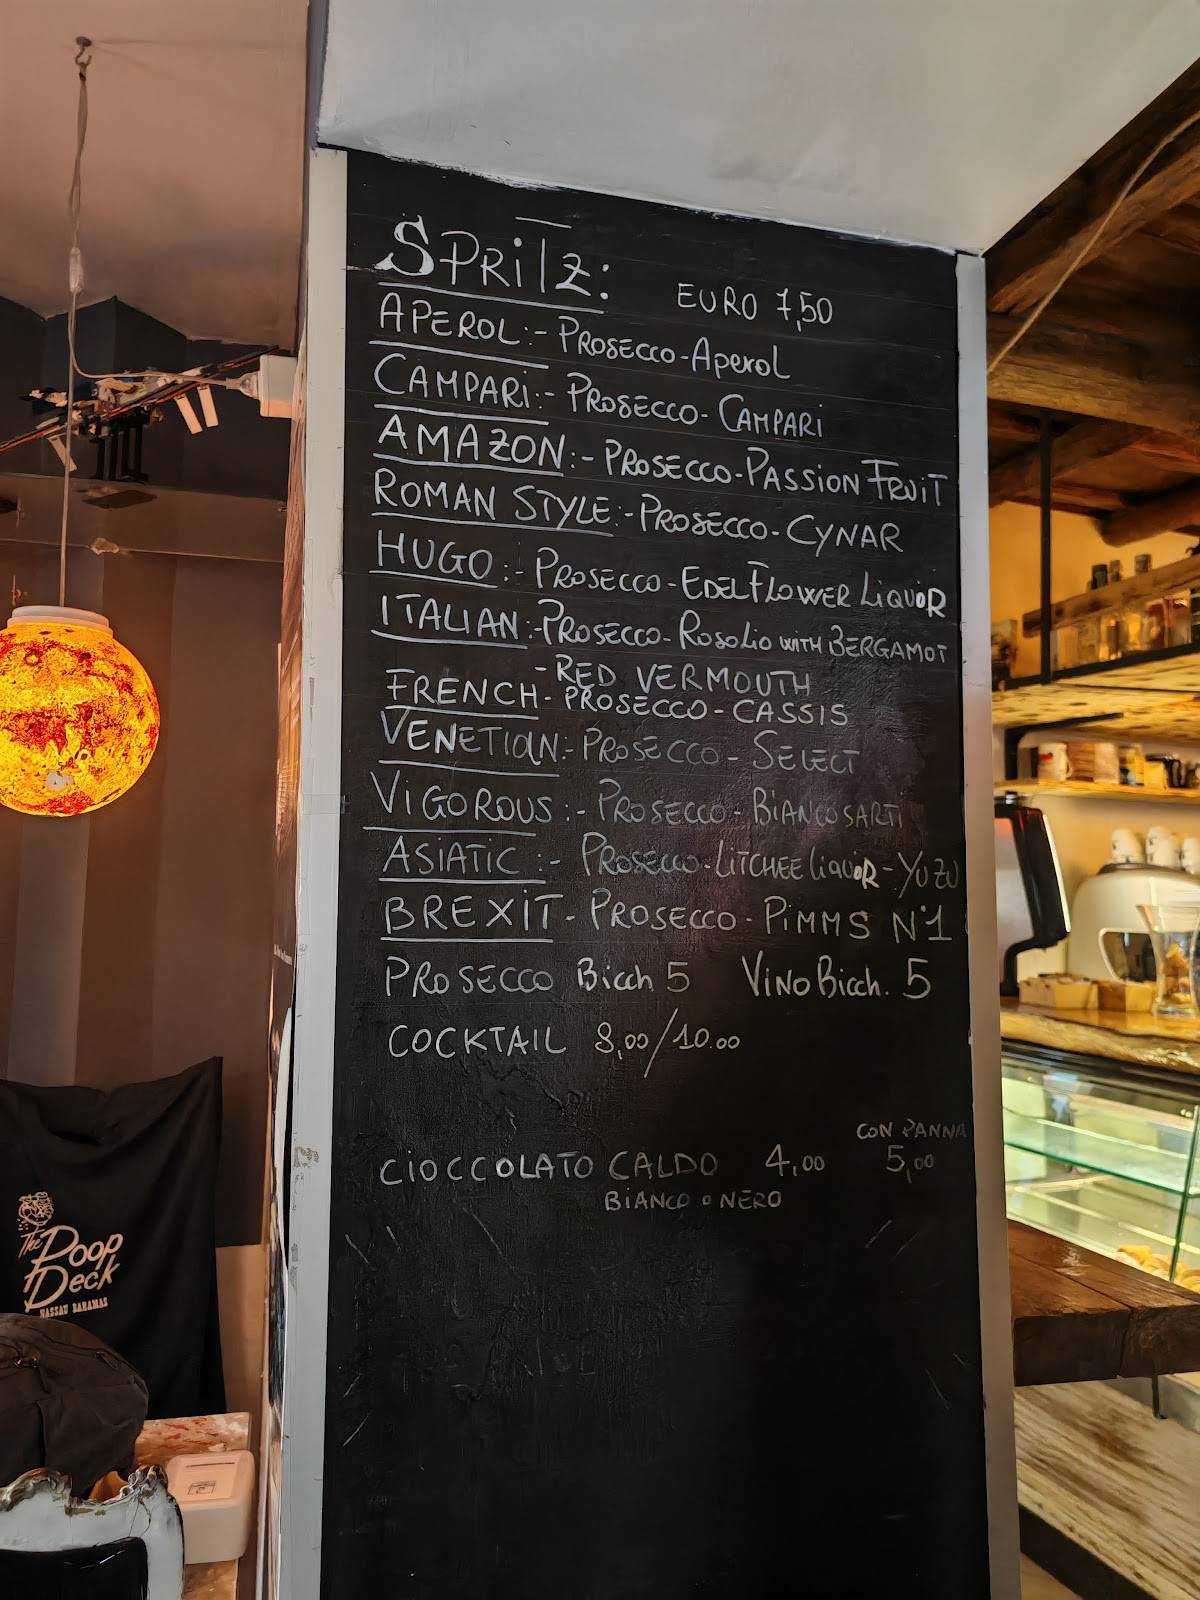 SPRITZ: EURO 7,50
APEROL:- PROSECCO - Aperol
CAMPARI:- PROSECCO - CAMPARI
AMAZON:- PROSECCO - PASSION FRUIT
ROMAN STYLE:- PROSECCO - CYNAR
HUGO:- PROSECCO - EDELFLOWER LIQUOR
ITALIAN:- PROSECCO - Rosolio WITH BERGAMOT
- RED VERMOUTH
FRENCH - PROSECCO - CASSIS
VENETIAN:- PROSECCO - SELECT
VIGOROUS:- PROSECCO - BIANCOSARTI
ASIATIC:- PROSECCO - LITCHEE LIQUOR - YUZU
BREXIT - PROSECCO - PIMMS N°1
PROSECCO Bicch 5 VINO Bicch. 5
COCKTAIL 8,00/10.00
CON PANNA
CIOCCOLATO CALDO 4,00 5,00
BIANCO O NERO
The Poop Deck
NASSAU BAHAMAS